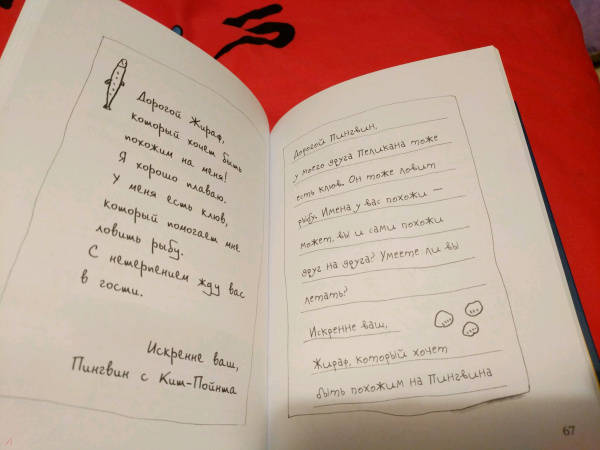 Дорогой Жираф,
который хочет быть
похожим на меня!
Я хорошо плаваю.
У меня есть клюв,
который помогает мне
ловить рыбу.
С нетерпением жду вас
в гости.
Искренне ваш,
Пингвин с Кит-Пойнта
Дорогой Пингвин,
у моего друга Пеликана тоже
есть клюв. Он тоже ловит
рыбу. Имена у вас похожи —
может, вы и сами похожи
друг на друга? Умеете ли вы
летать?
Искренне ваш,
Жираф, который хочет
быть похожим на Пингвина
67